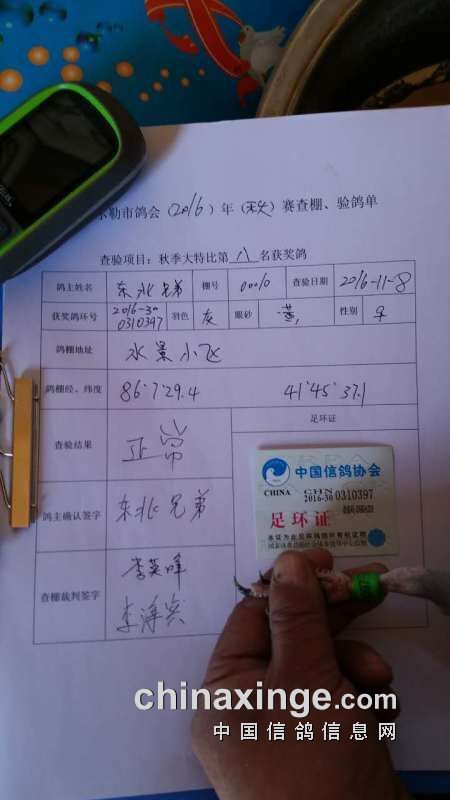 尔勒市鸽会(2016)年(秋)赛查棚、验鸽单
查验项目：秋季大特比第八名获奖鸽
鸽主姓名 东北兄弟 棚号 00010 查验日期 2016-11-8
获奖鸽环号 2016-30 0310397 羽色 灰 眼砂 黄 性别
鸽棚地址 水景小
鸽棚经、纬度 86°7'29.4 41°45'37.1
查验结果 正常 足环证
鸽主确认签字 东北兄弟
查棚裁判签字 李英峰
李
中国信鸽协会
CHINA CHN
2016-30 0310397
足环证
chinaxinge.com
中国信鸽信息网